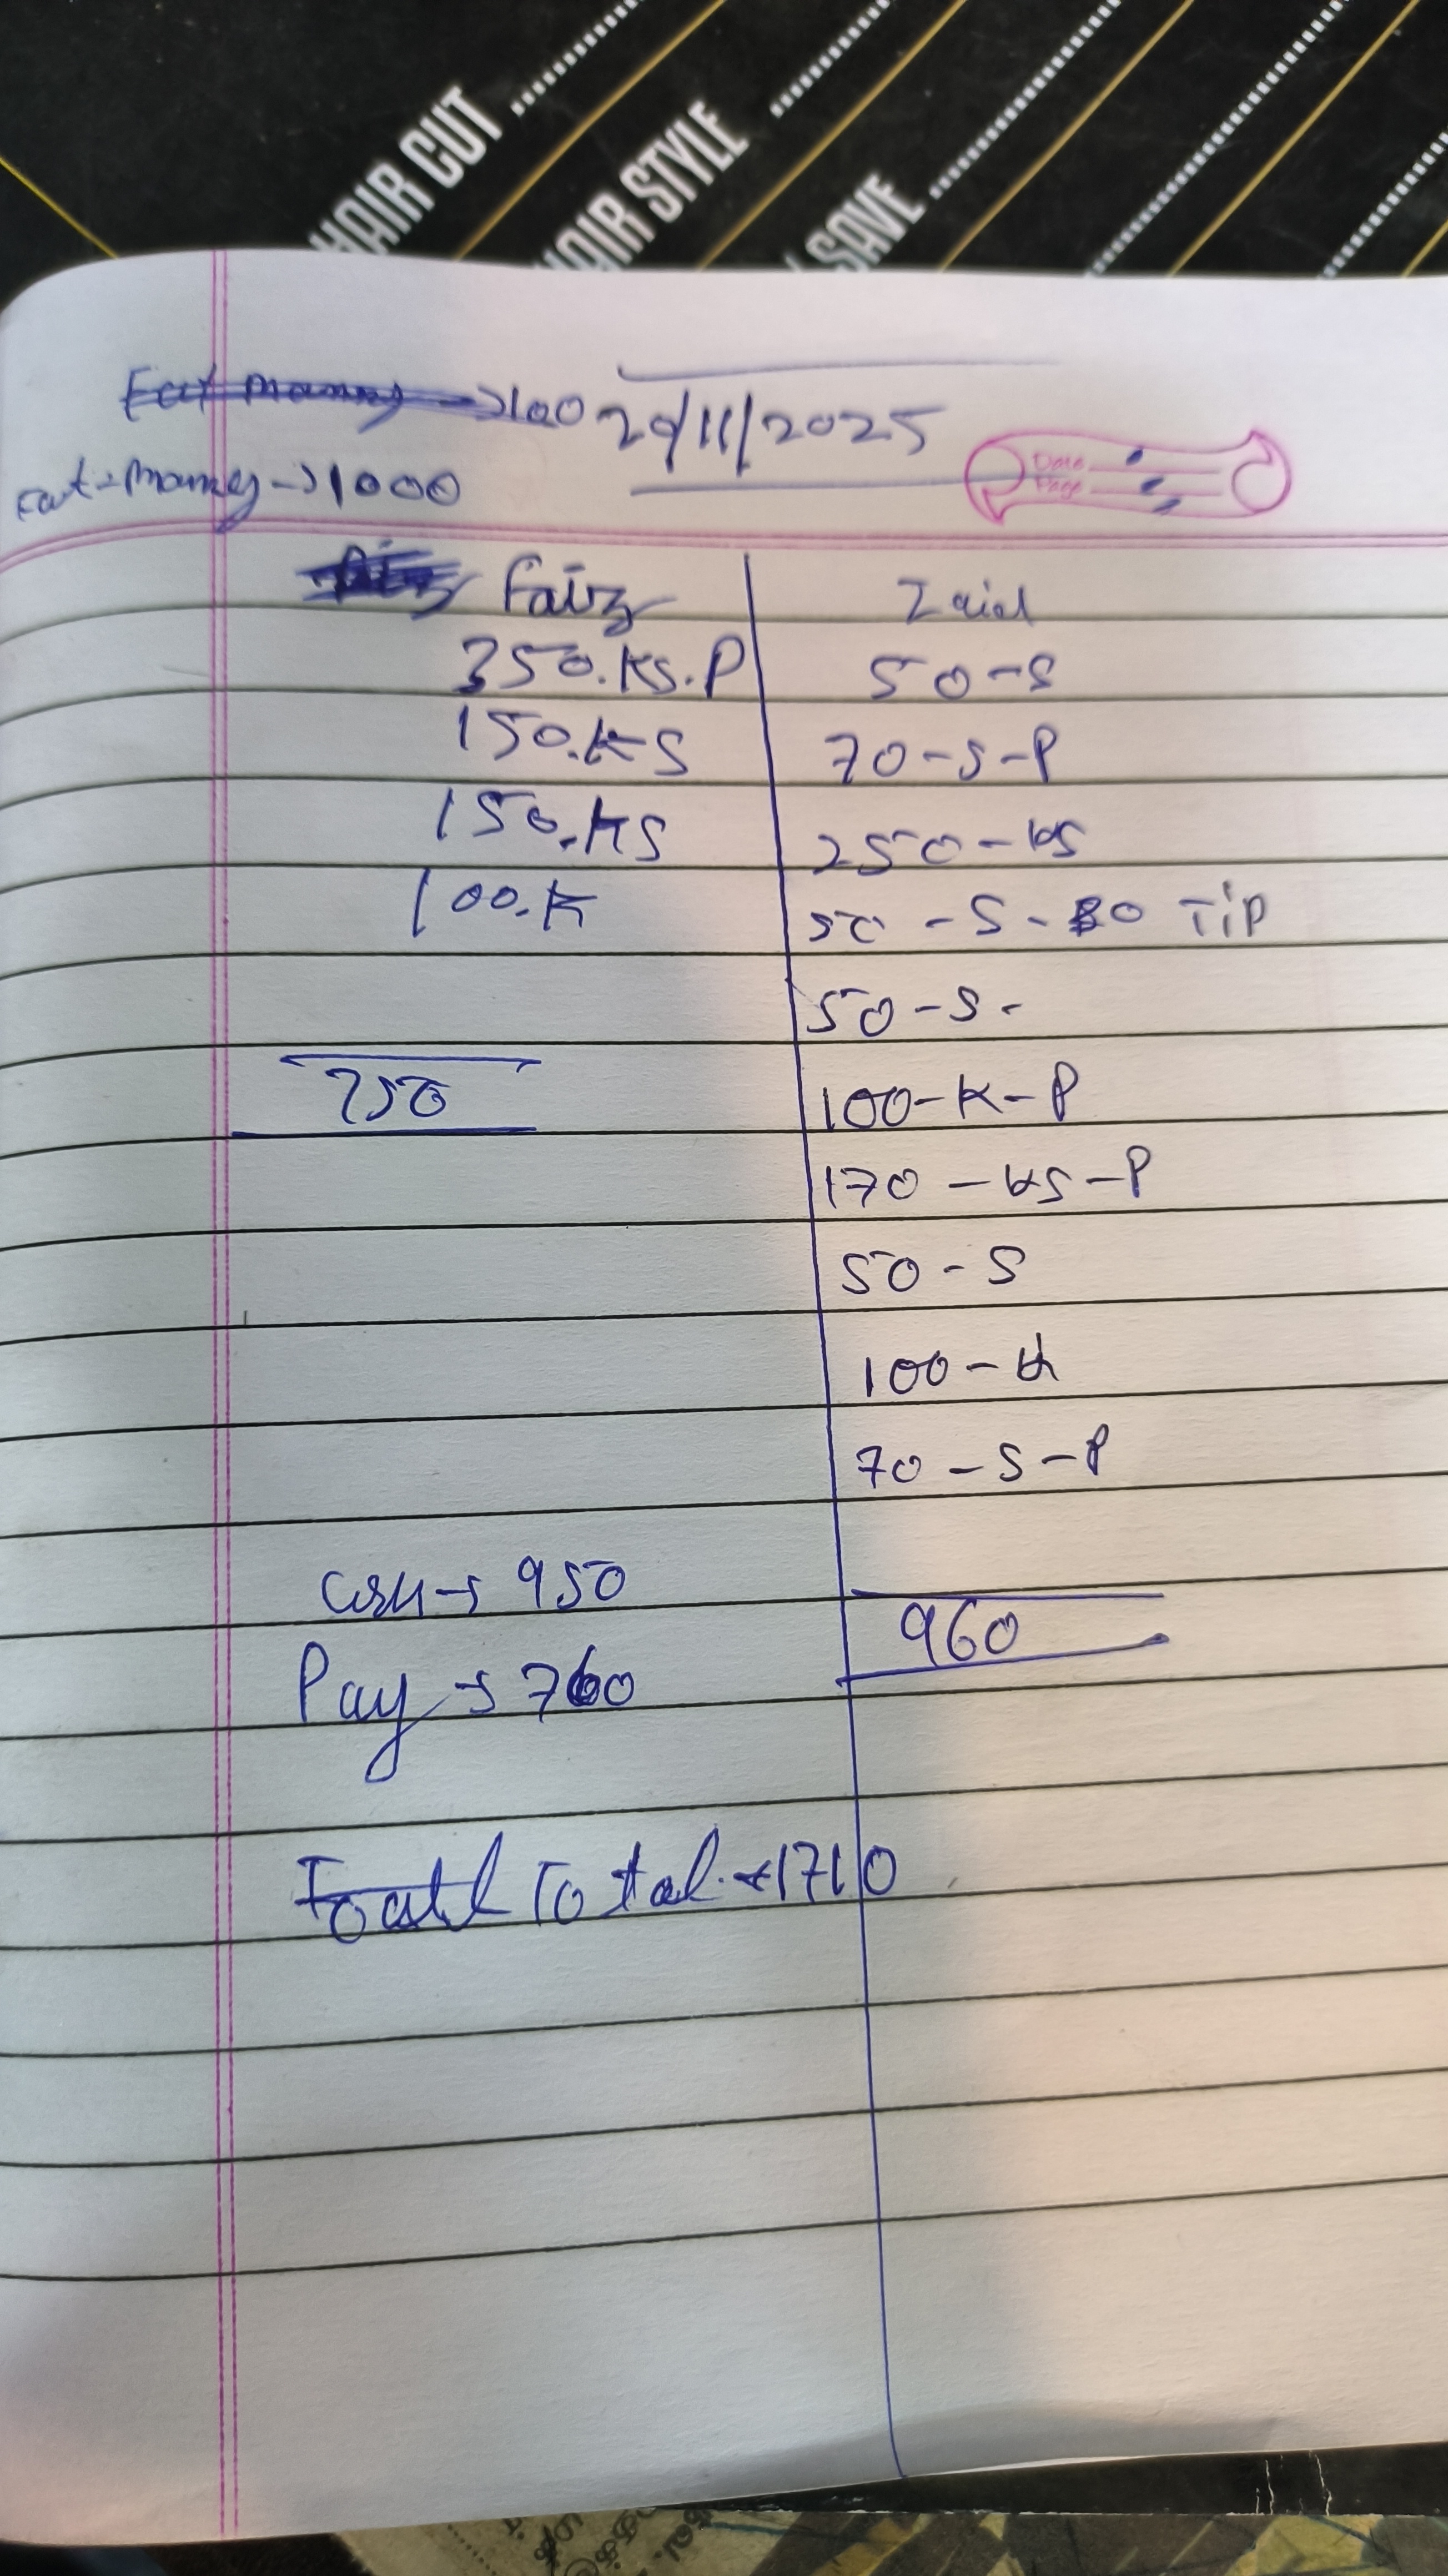 HAIR CUT
HAIR STYLE
SAVE
Eat Maney →100
29/11/2025
Eat-Maney →1000
Date
Page
Faiz
350.KS.P
150.KS
150.KS
100.K
750
Zaid
50-S
70-S-P
250-KS
50-S- TIP
50-S-
100-K-P
170-KS-P
50-S
100-K
70-S-P
960
Cash→950
Pay→760
Total→1710